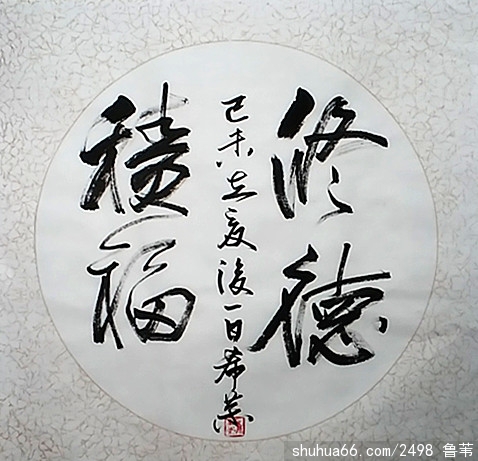 修德
己未立夏後一日希
積福
shuhua66.com/2498 鲁苇